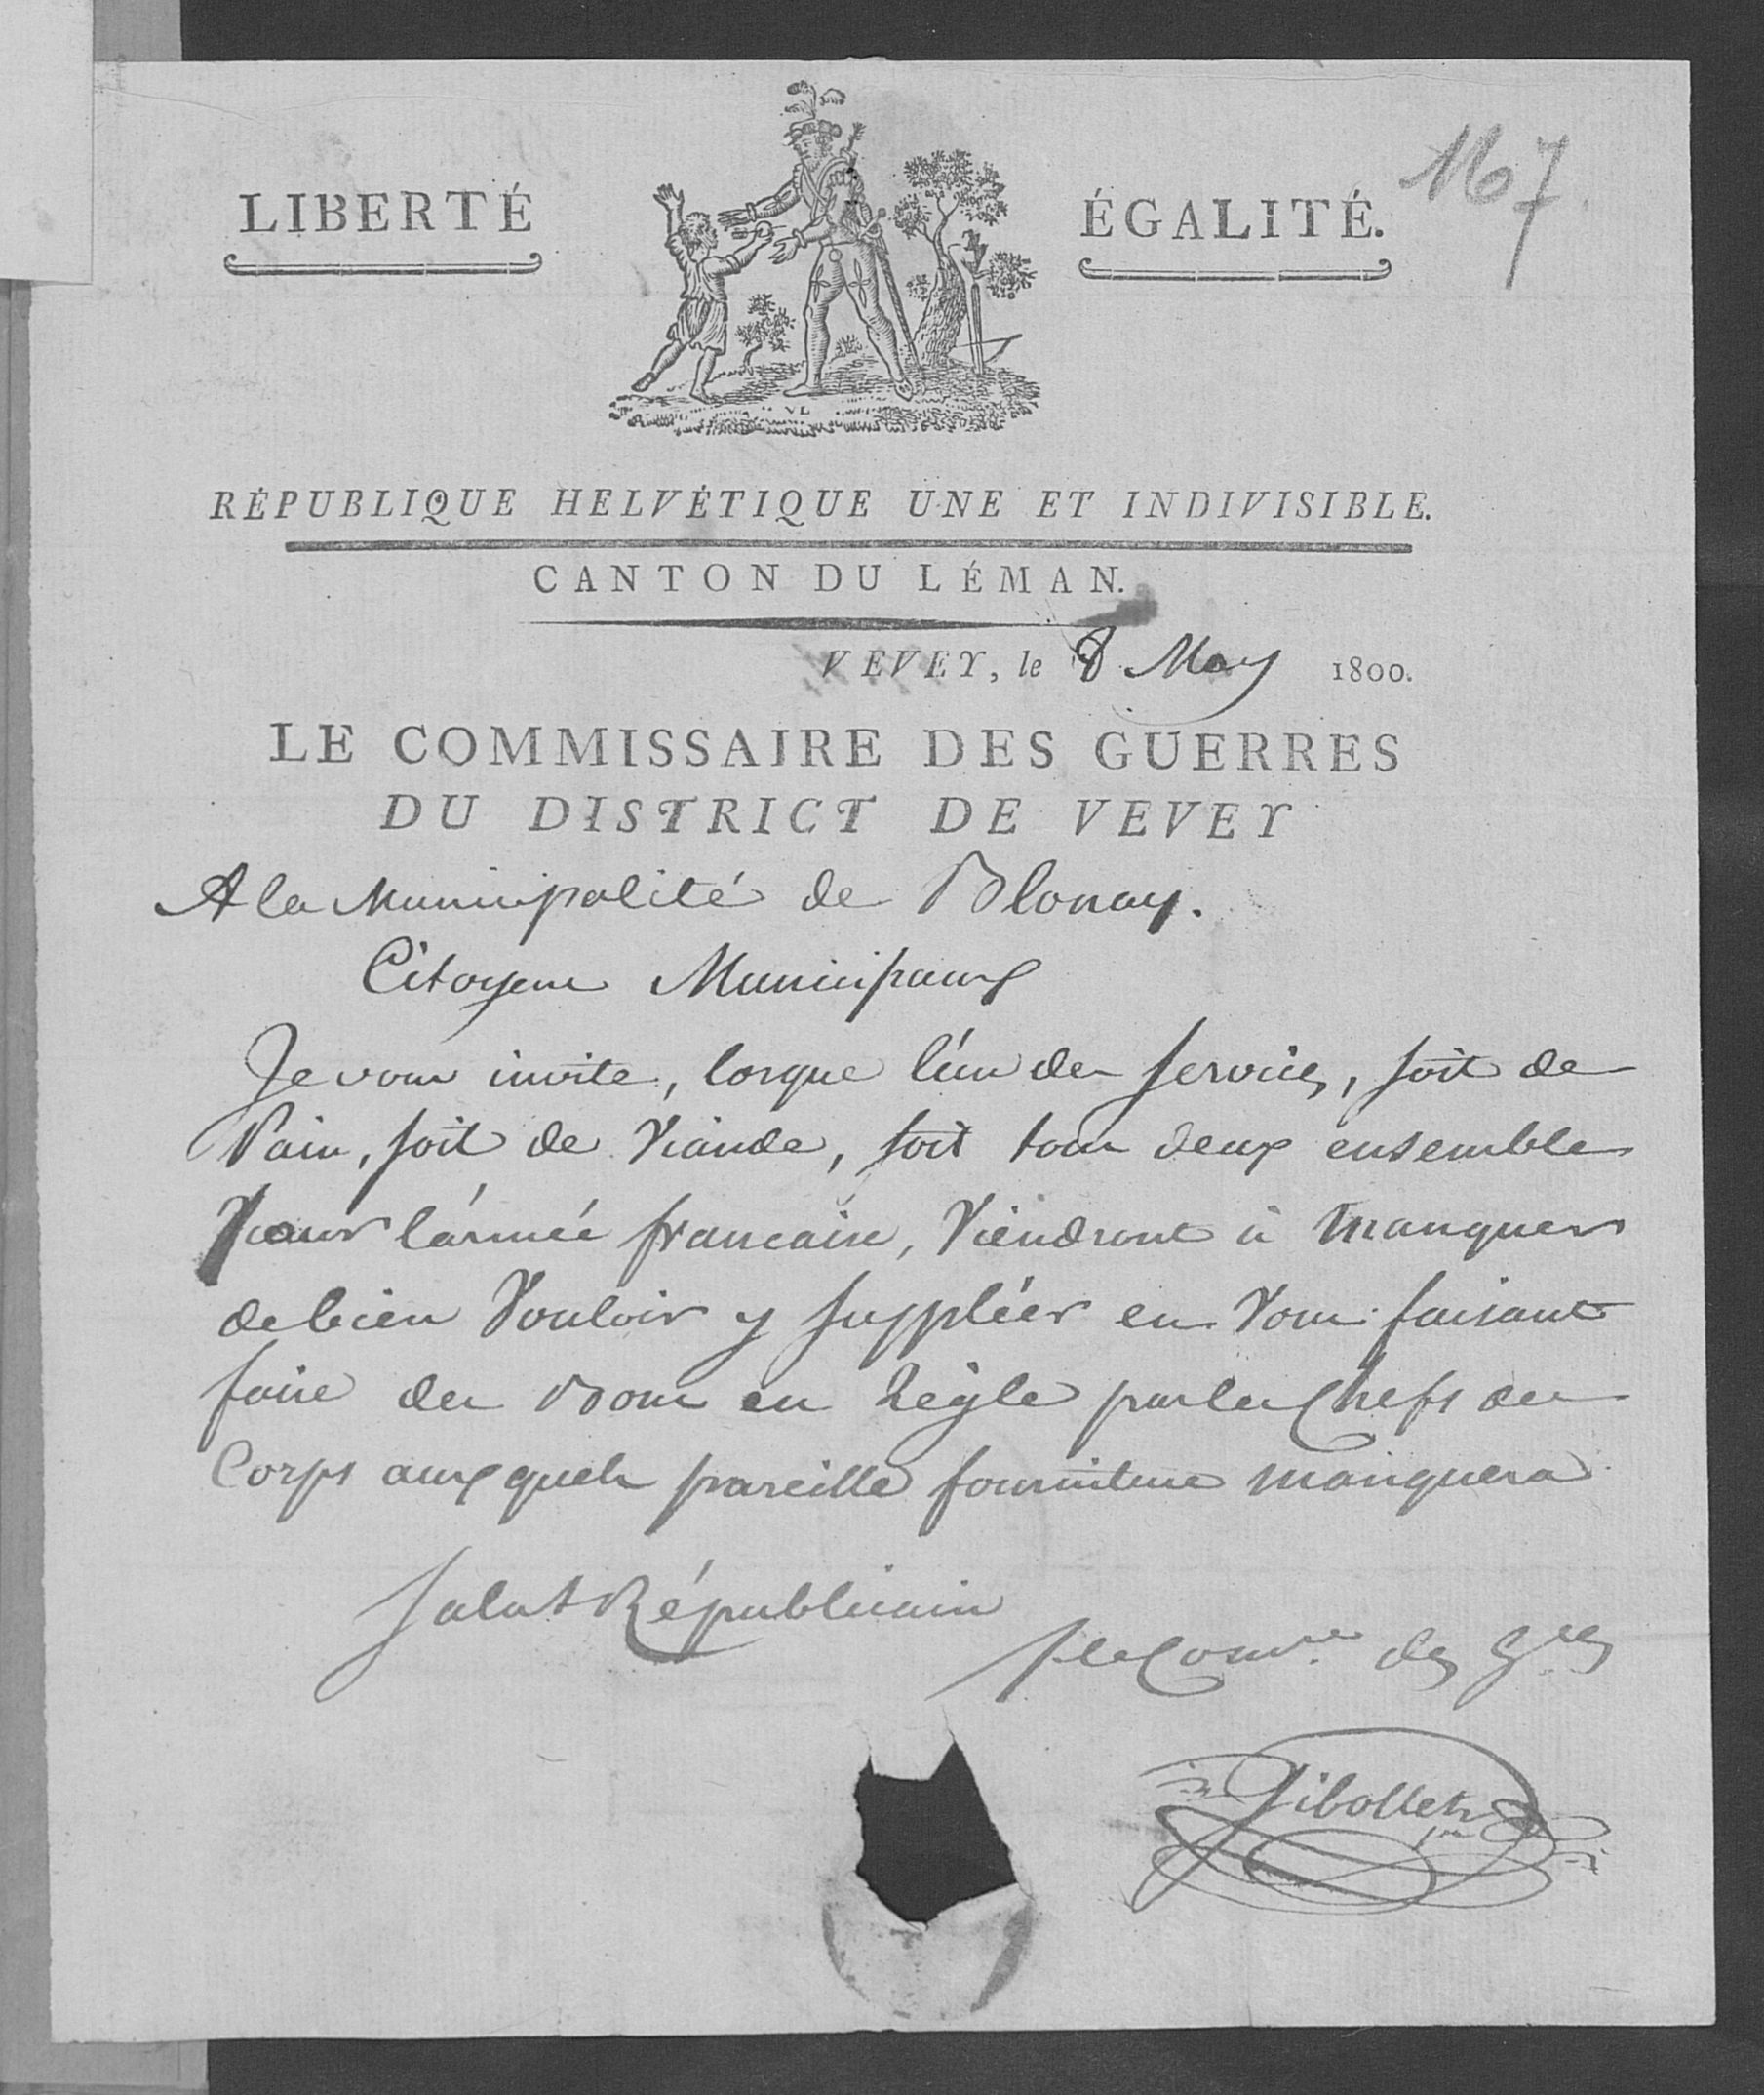 167
LIBERTÉ ÉGALITÉ.
VL
RÉPUBLIQUE HELVÉTIQUE UNE ET INDIVISIBLE.
CANTON DU LÉMAN.
VEVEY, le 8 May 1800.
LE COMMISSAIRE DES GUERRES
DU DISTRICT DE VEVEY
A la Municipalité de Blonay.
Citoyens Municipaux
Je vous invite, lorque l'un des services, soit de
Pain, soit de Viande, soit tous deux ensemble
Pour l'armée francaise, Viendront à manquer
de bien Vouloir y suppléer en Vous faisant
faire des Bons en Règle par les Chefs des
Corps aux quels pareille fourniture manquera
Salut Républicain
le Comre. des Gres
Gibollet